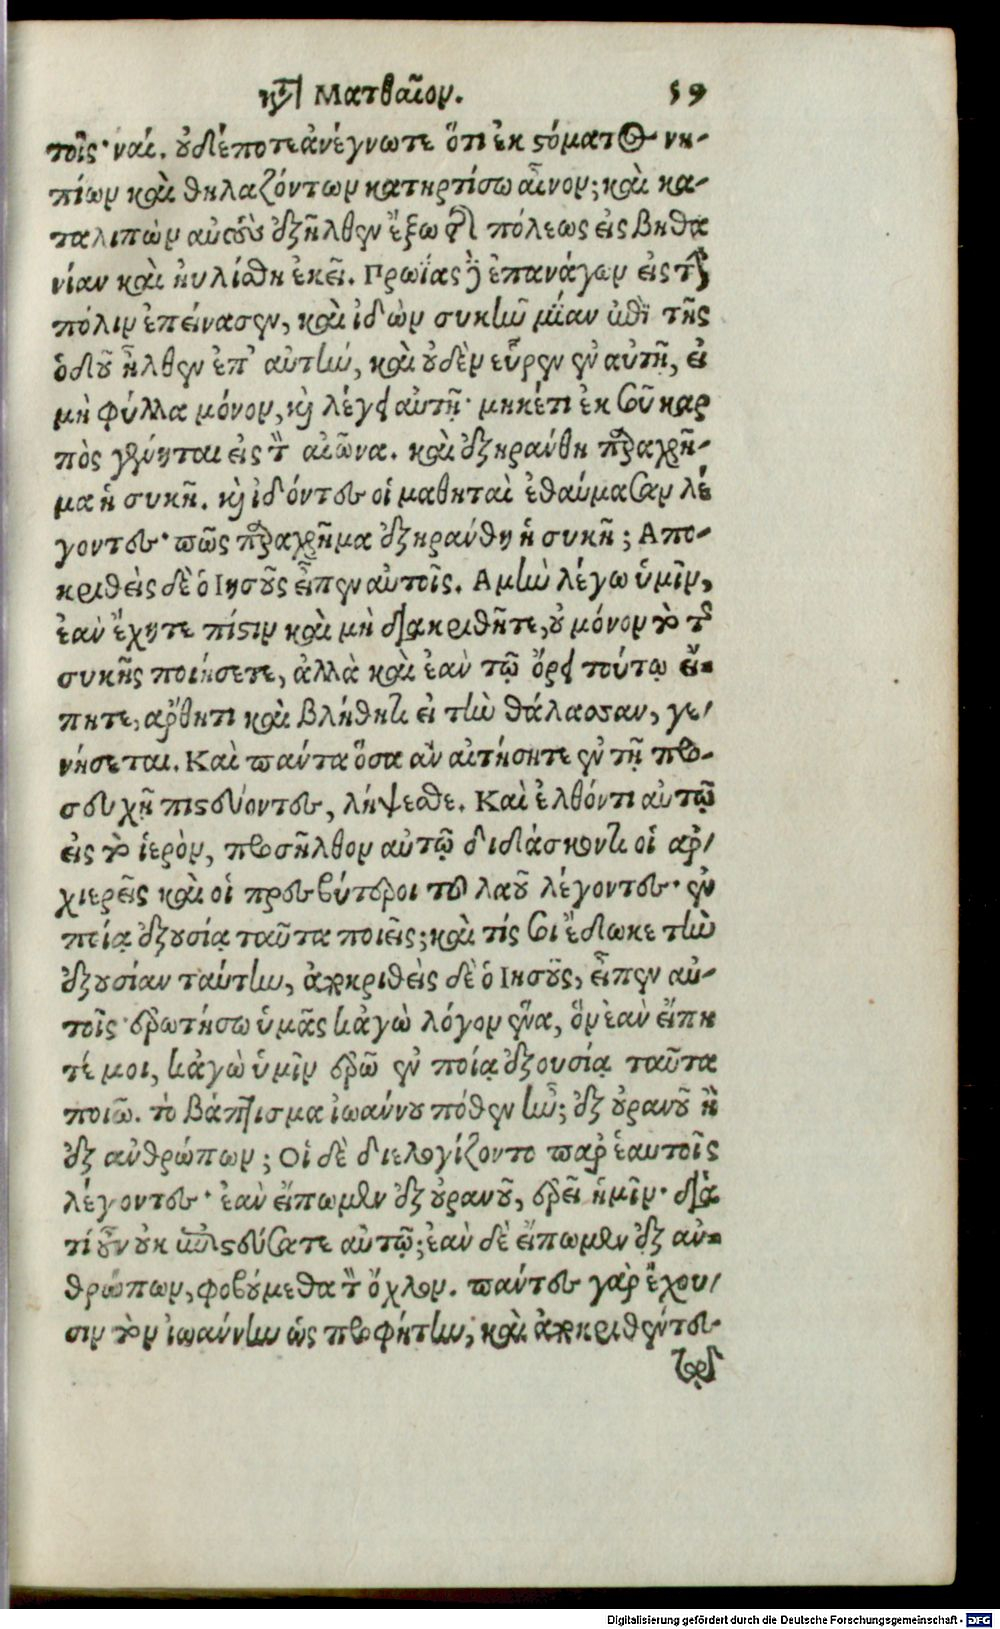 κατὰ Ματθαῖον. 59
τοῖς· ναί. οὐδέποτε ἀνέγνωτε ὅτι ἐκ στόματος νη-
πίων καὶ θηλαζόντων κατηρτίσω αἶνον; καὶ κα-
ταλιπὼν αὐτοὺς ἐξῆλθεν ἔξω τῆς πόλεως εἰς βηθα
νίαν καὶ ηυλίσθη ἐκεῖ. Πρωΐας δὲ ἐπανάγων εἰς τὴν
πόλιν ἐπείνασεν, καὶ ἰδὼν συκῆν μίαν ἐπὶ τῆς
ὁδοῦ ἦλθεν ἐπ' αὐτήν, καὶ οὐδὲν εὗρεν ἐν αὐτῇ, εἰ
μὴ φύλλα μόνον, καὶ λέγει αὐτῇ· μηκέτι ἐκ σοῦ καρ
πὸς γένηται εἰς τὸν αἰῶνα. καὶ ἐξηράνθη παραχρῆ-
μα ἡ συκῆ. καὶ ἰδόντες οἱ μαθηταὶ ἐθαύμασαν λέ
γοντες· πῶς παραχρῆμα ἐξηράνθη ἡ συκῆ; Απο-
κριθεὶς δὲ ὁ Ιησοῦς εἶπεν αὐτοῖς. Αμὴν λέγω ὑμῖν,
ἐὰν ἔχητε πίστιν καὶ μὴ διακριθῆτε, οὐ μόνον τὸ τῆς
συκῆς ποιήσετε, ἀλλὰ καὶ ἐὰν τῷ ὄρει τούτῳ εἴ-
πητε, αρθητι καὶ βλήθητι εἰ τὴν θάλασσαν, γε-
νήσεται. Καὶ πάντα ὅσα αν αἰτήσητε ἐν τῇ προ-
σευχῇ πιστεύοντες, λήψεσθε. Καὶ ἐλθόντι αὐτῷ
εἰς τὸ ἱερὸν, προσῆλθον αὐτῷ διδάσκοντι οἱ αρ-
χιερεῖς καὶ οἱ πρεσβύτεροι τοῦ λαοῦ λέγοντες· ἐν
ποίᾳ ἐξουσίᾳ ταῦτα ποιεῖς; καὶ τίς σοι ἔδωκε τὴν
ἐξουσίαν ταύτην, ἀποκριθεὶς δὲ ὁ Ιησοῦς, εἶπεν αὐ-
τοῖς· ἐρωτήσω ὑμᾶς κἀγὼ λόγον ἕνα, ὃν ἐὰν εἴπη
τέ μοι, κἀγὼ ὑμῖν ἐρῶ ἐν ποίᾳ ἐξουσίᾳ ταῦτα
ποιῶ. τὸ βάπτισμα ἰωάννου πόθεν ἦν; ἐξ οὐρανοῦ ἢ
ἐξ ανθρώπων; Οἱ δὲ διελογίζοντο παρ ἑαυτοῖς
λέγοντες· ἐὰν εἴπωμεν ἐξ οὐρανοῦ, ἐρεῖ ἡμῖν· διὰ
τί οὖν οὐκ ἐπιστεύσατε αὐτῷ; ἐὰν δὲ εἴπωμεν ἐξ αν-
θρώπων, φοβούμεθα τὸν ὄχλον. πάντες γὰρ ἔχου-
σιν τὸν ἰωάννην ὡς προφήτην, καὶ ἀποκριθέντες
τῷ
Digitalisierung gefördert durch die Deutsche Forschungsgemeinschaft - DFG